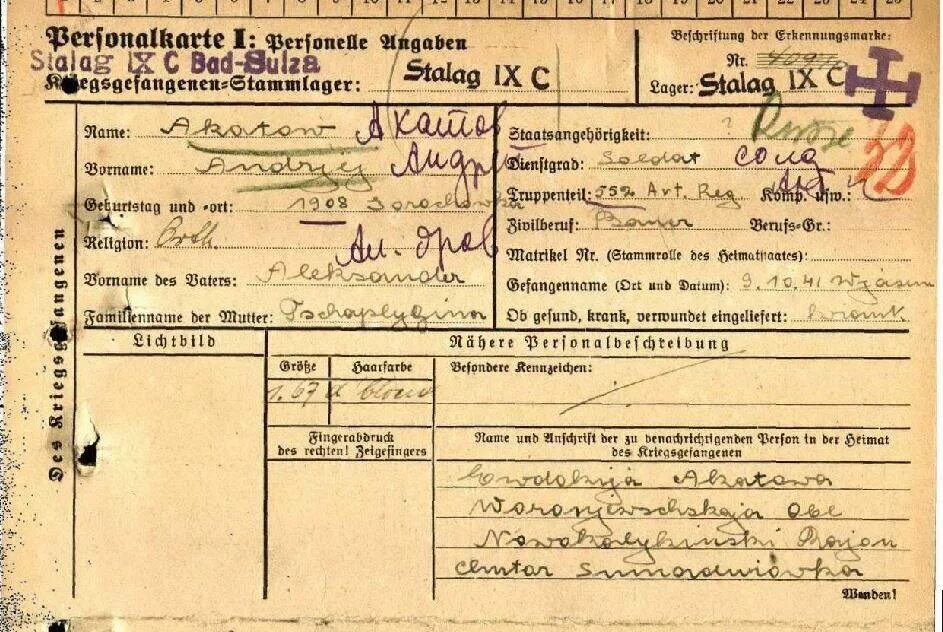 Personalkarte I: Personelle Angaben
Stalag IX C Bad-Sulza
Kriegsgefangenen-Stammlager: Stalag IX C
Beschriftung der Erkennungsmarke:
Nr.
Lager: Stalag IX C
Des Kriegsgefangenen
Name: Akatow Акатов
Vorname: Andrzej Андрей
Geburtstag und -ort: 1908
Religion: Orth.
Ал. др ов
Vorname des Vaters: Aleksander
Familienname der Mutter: Tschaplygina
Staatsangehörigkeit: ? Russe
Dienstgrad: Soldat солд
Truppenteil: 552 Art. Reg Komp. usw.:
Zivilberuf: Bauer Berufs-Gr.:
Matrikel Nr. (Stammrolle des Heimatstaates):
Gefangenname (Ort und Datum): 9.10.41 Wjasma
Ob gesund, krank, verwundet eingeliefert: krank
Lichtbild
Nähere Personalbeschreibung
Größe Haarfarbe Besondere Kennzeichen:
1.67 d blond
Fingerabdruck
des rechten! Zeigefingers
Name und Anschrift der zu benachrichtigenden Person in der Heimat
des Kriegsgefangenen
Ewdokija Akatowa
Woronjewschskaja Obl
Nowokalykinski Rajon
Wenden!